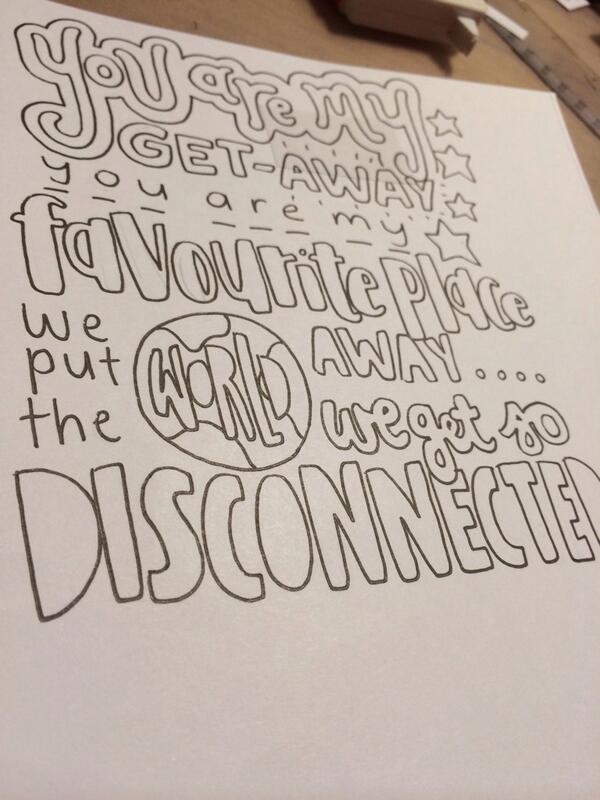 you are my
GET-AWAY
you are my
favourite place
we put the WORLD AWAY....
we get so
DISCONNECTED